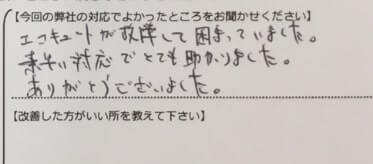 【今回の弊社の対応でよかったところをお聞かせください】
エコキュートが故障して困まっていました。
素早い対応でとても助かりました。
ありがとうございました。
【改善した方がいい所を教えて下さい】